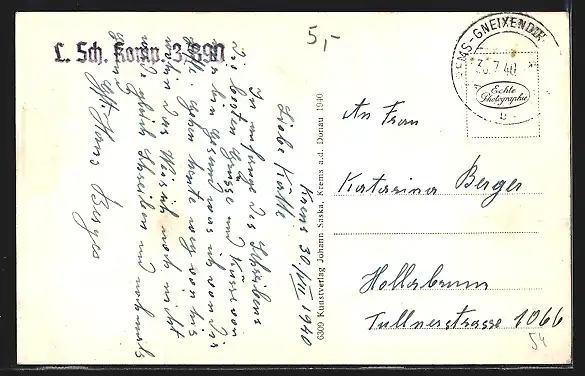 L. Sch. Komp. 3/890
5,-
KREMS-GNEIXENDORF
30.7.40
b
Echte
Photographie
Krems 30/VII 1940
Liebe Käthe
Im anfange des Schreibens
die besten Grüsse und Küsse von
bin gesund was ich von Dir
hoffe. gehen heute weg von hier
wohin das Weis ich noch nicht
werde gleich Schreiben und nochmals
Hans Berger
6309 Kunstverlag Johann Saska, Krems a.d. Donau 1940
An Frau
Katarina Berger
Hollabrunn
Tullnerstrasse 1066
54